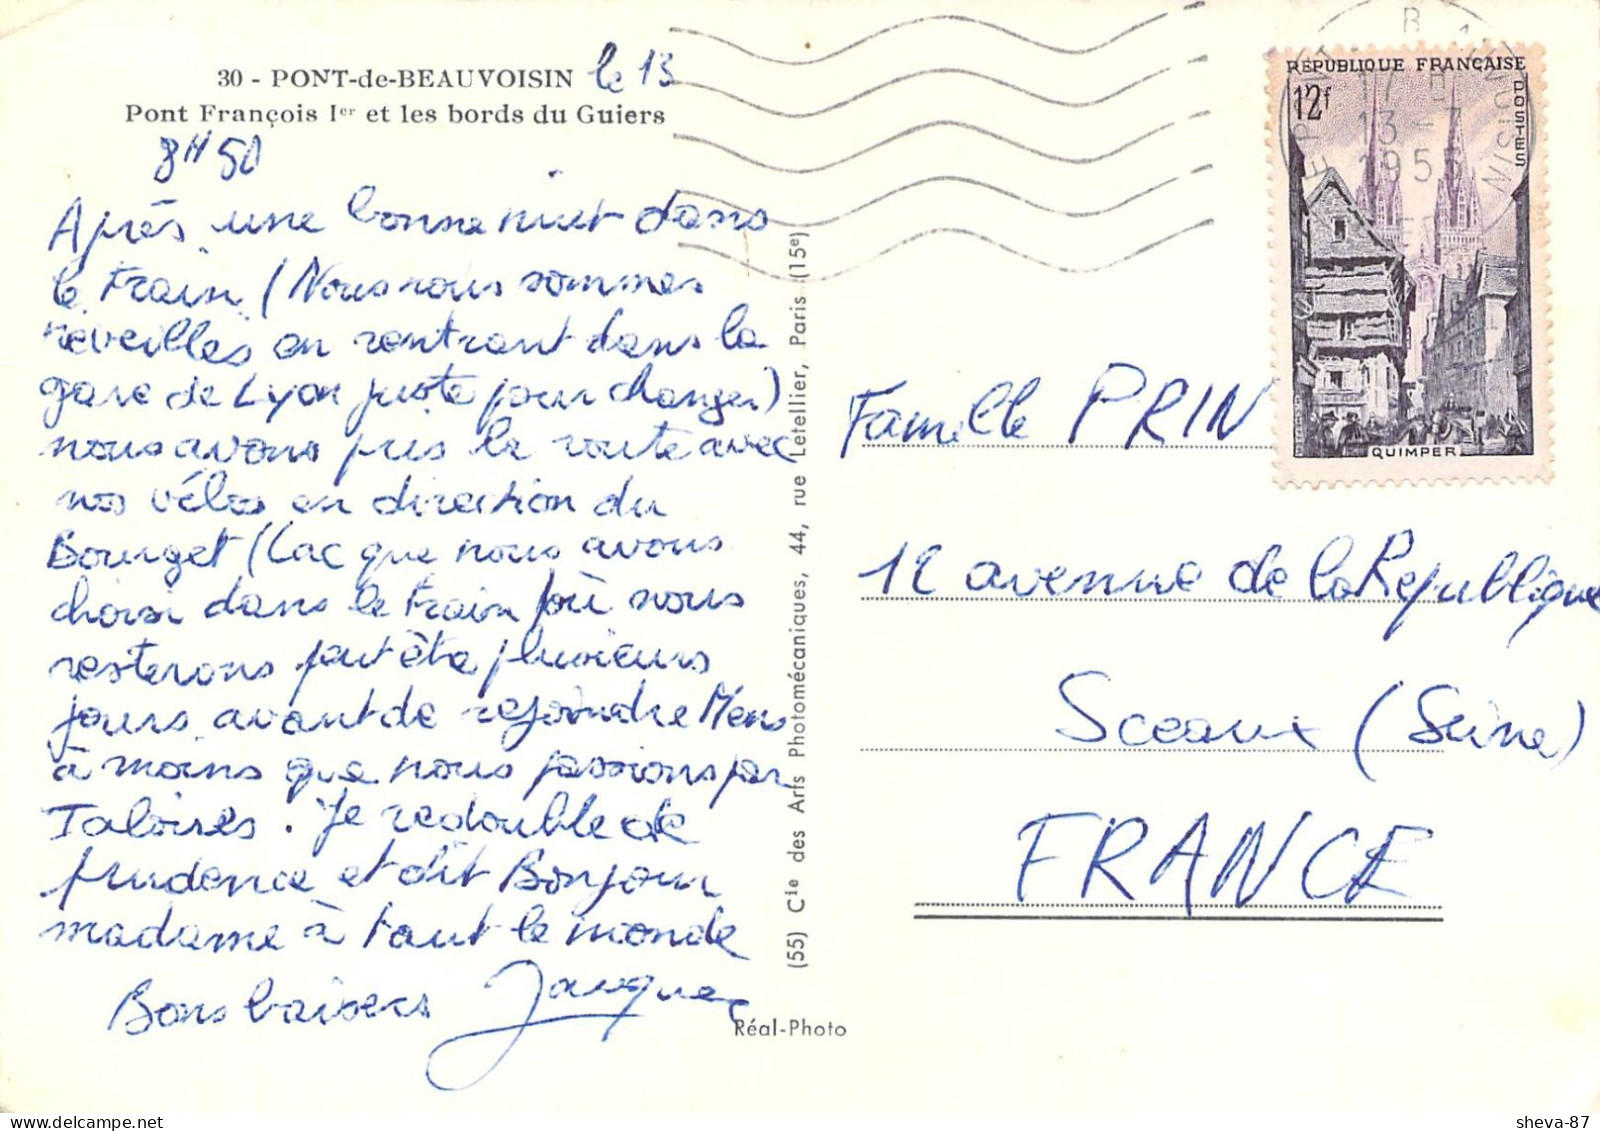 30 - PONT-de-BEAUVOISIN
Pont François Ier et les bords du Guiers
le 13
8H50
Après une bonne nuit dans
le train (Nous nous sommes
réveillés en rentrant dans la
gare de Lyon juste pour changer)
nous avons pris la route avec
nos vélos en direction du
Bourget (Lac que nous avons
choisi dans le train) où nous
resterons peut être plusieurs
jours avant de rejoindre Mens
à moins que nous passions par
Taloires. Je redouble de
prudence et dit Bonjour
madame à tout le monde
Bons baisers Jacques
(55) Cie des Arts Photomécaniques, 44, rue Letellier, Paris (15e)
Réal-Photo
RÉPUBLIQUE FRANÇAISE
12f
POSTES
QUIMPER
17 H
13 - 7
195
Famille PRIN
12 avenue de la Republique
Sceaux (Seine)
FRANCE
sheva-87